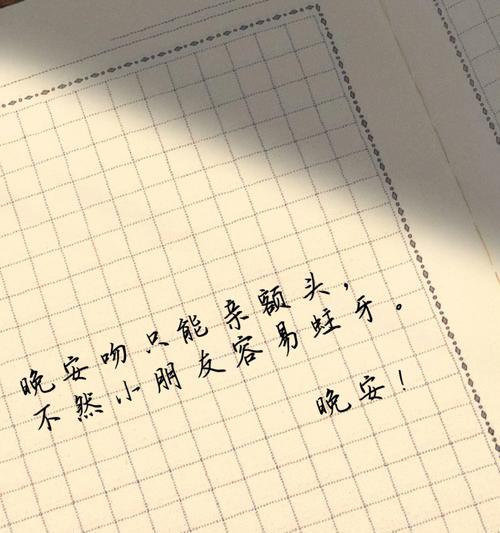 晚安吻只能亲额头，
不然小朋友容易蛀牙。
晚安！